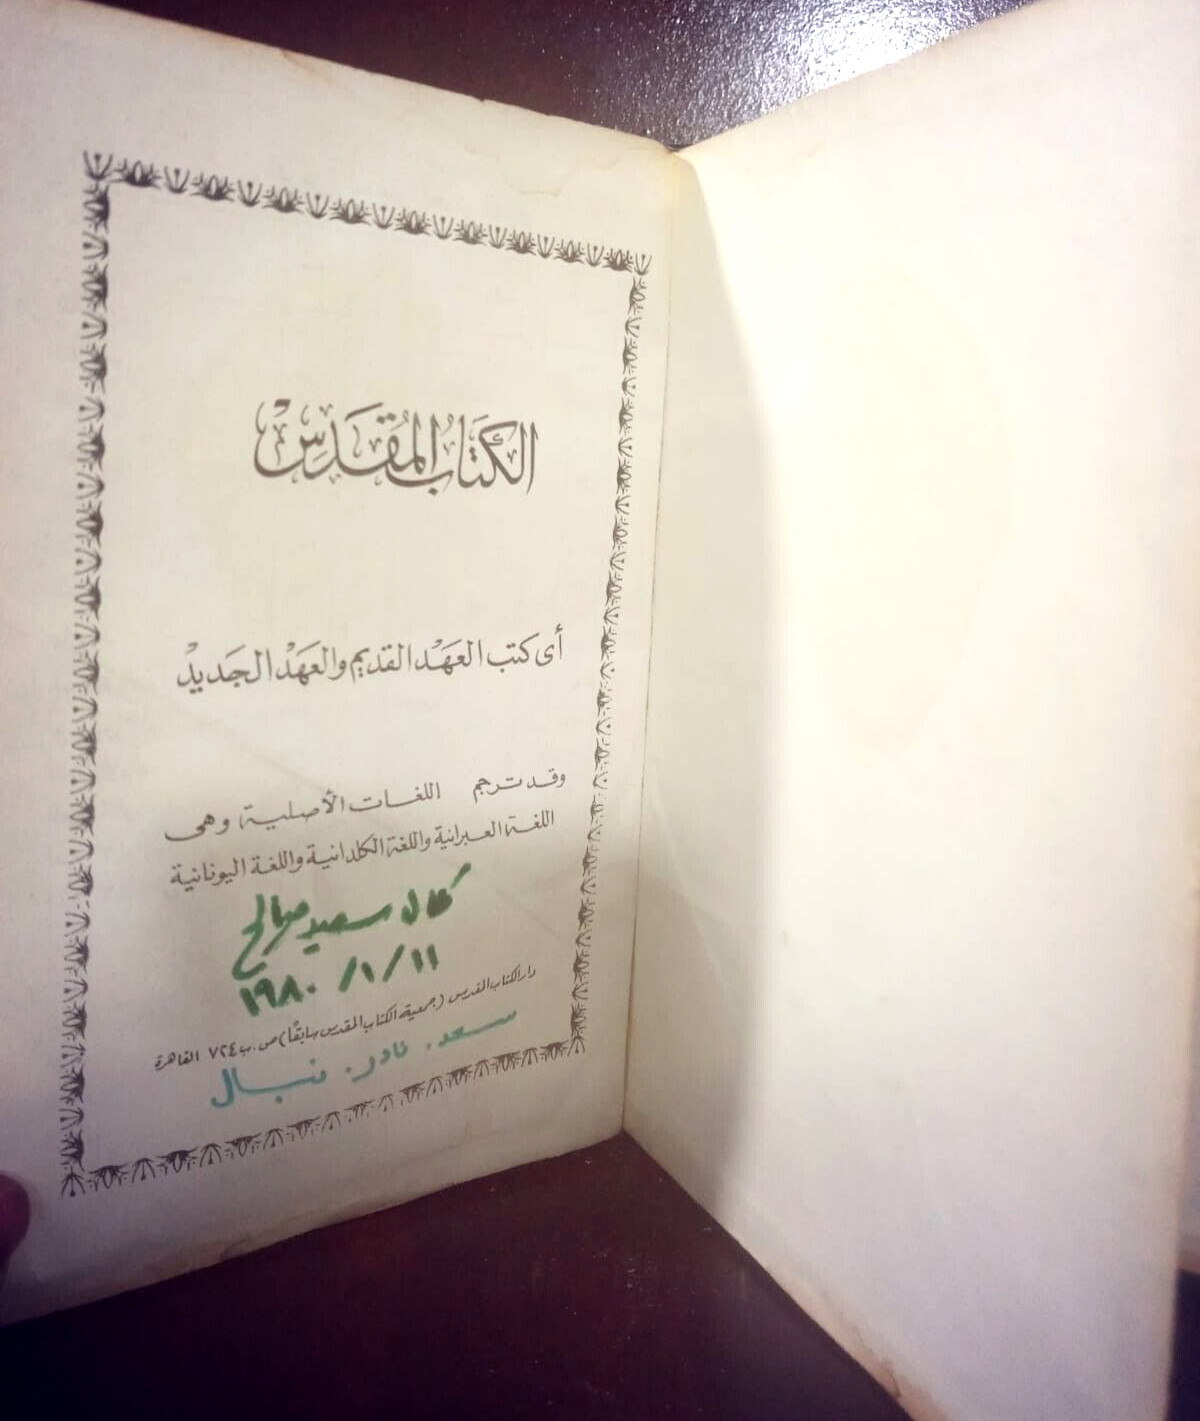 الكِتَابُ المُقَدَّسْ
أى كتب العَهْد القديم والعَهْد الجَديدْ
وقد ترجم اللغات الأصلية، وهى
اللغة العبرانية واللغة الكلدانية واللغة اليونانية
كمال سعيد صالح
١١/١/١٩٨٠
دار الكتاب المقدس (جمعية الكتاب المقدس سابقًا) ص.ب ٧٢٤ القاهرة
سعد. نادر. نبال